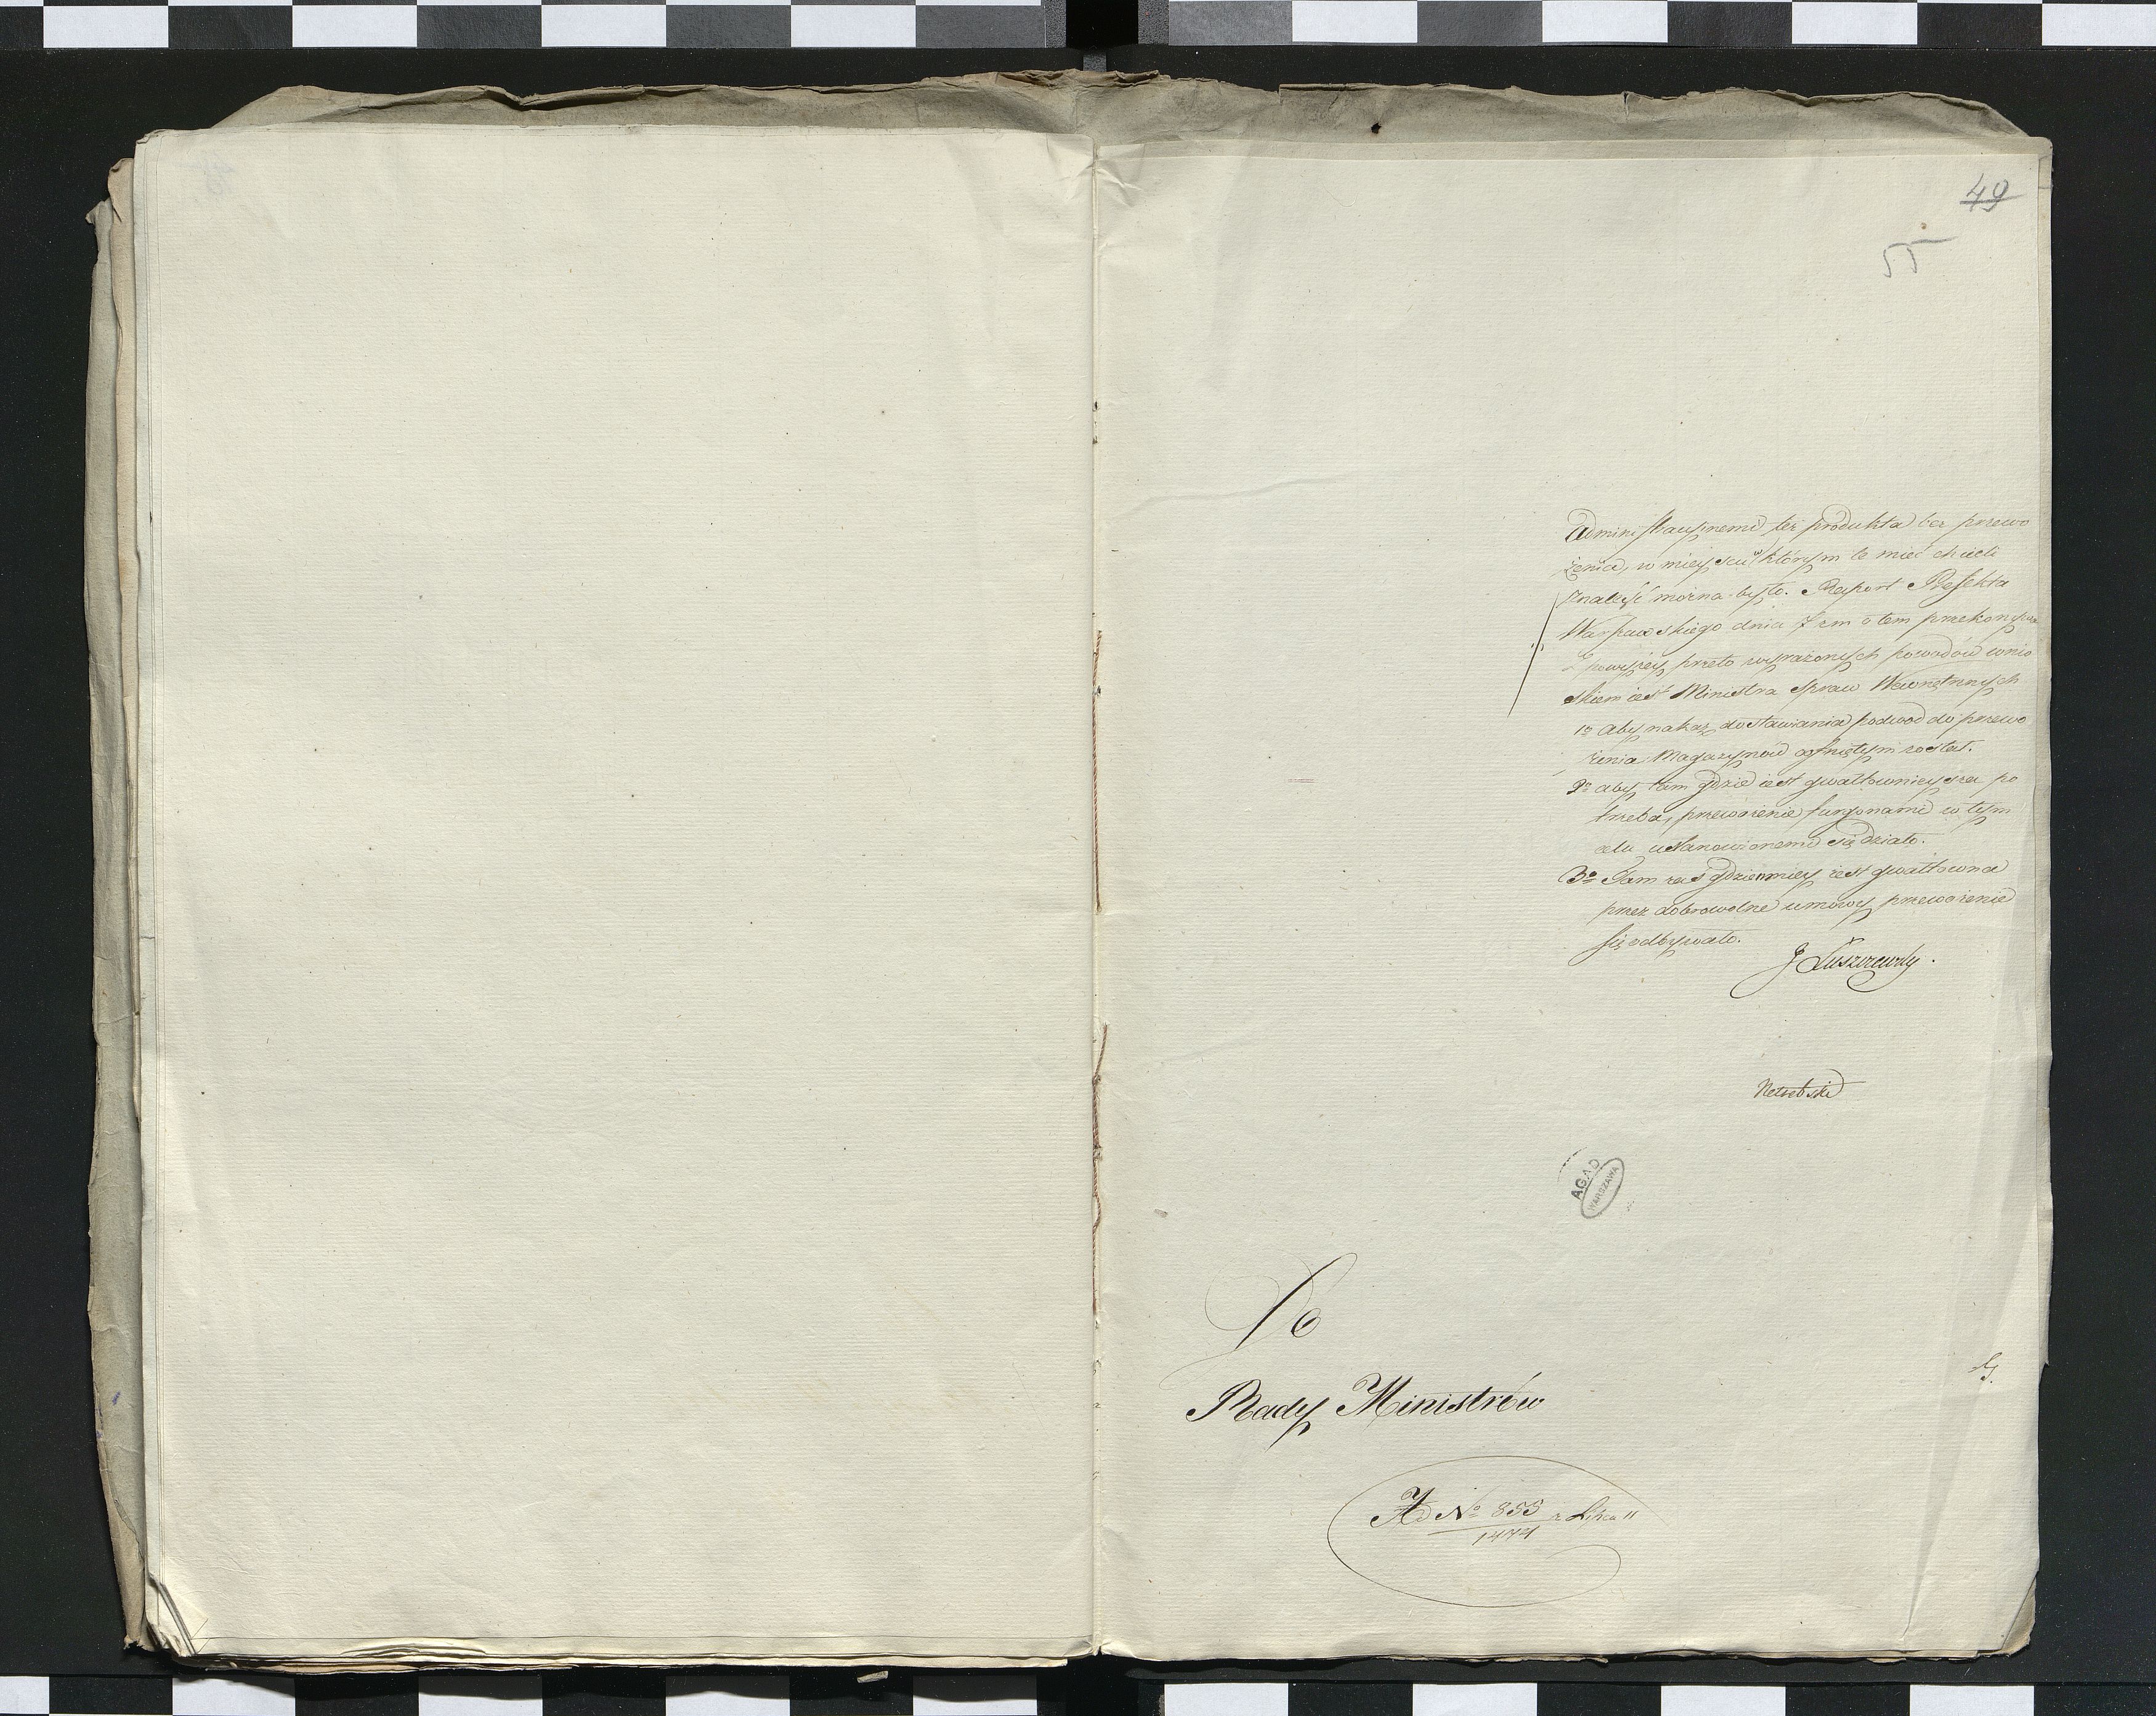 49
55
Administracyinemi też produkta bez przewo
żenia, w mieyscu w którym te mieć chcieli
znaleść można było. Raport Prefekta
Warszawskiego dnia 7 zm o tem przekonywa
Z powyżey przeto wyrażonych powodów wnio
skiem iest Ministra Spraw Wewnętrznych
1o Aby nakaz dostawiania podwod do przewo
żenia Magazynów cofniętym został.
2o aby tam gdzie iest gwałtownieysza po
trzeba, przewożenie furgonami w tym
celu ustanowionemi się działo.
3o Tam zaś gdzie mniey iest gwałtowna
przez dobrowolne umowy przewożenie
się odbywało.
J Łuszczewsky.
AGAD
WARSZAWA
Do
Rady Ministrów
Ad No 853
1474